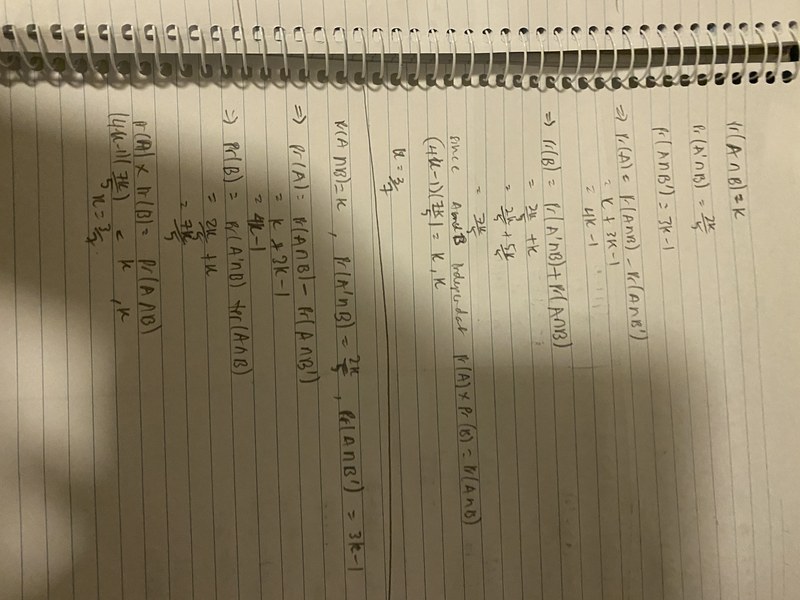 Pr(A∩B)=k
Pr(A'∩B) = 2k/5
Pr(A∩B') = 3k-1
⇒ Pr(A) = Pr(A∩B) - Pr(A∩B')
= k + 3k-1
= 4k-1
⇒ Pr(B) = Pr(A'∩B) + Pr(A∩B)
= 2k/5 + k
= 2k/5 + 5k/5
= 7k/5
Since A and B independent Pr(A) × Pr(B) = Pr(A∩B)
(4k-1)(7k/5) = k, k
k = 3/7
Pr(A∩B)=k, Pr(A'∩B) = 2k/5, Pr(A∩B') = 3k-1
⇒ Pr(A) = Pr(A∩B) - Pr(A∩B')
= k + 3k-1
= 4k-1
⇒ Pr(B) = Pr(A'∩B) + Pr(A∩B)
= 2k/5 + k
= 7k/5
Pr(A) × Pr(B) = Pr(A∩B)
(4k-1)(7k/5) = k, k
k = 3/7